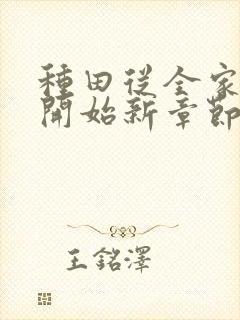 種田從全家
開始新章節
王銘澤